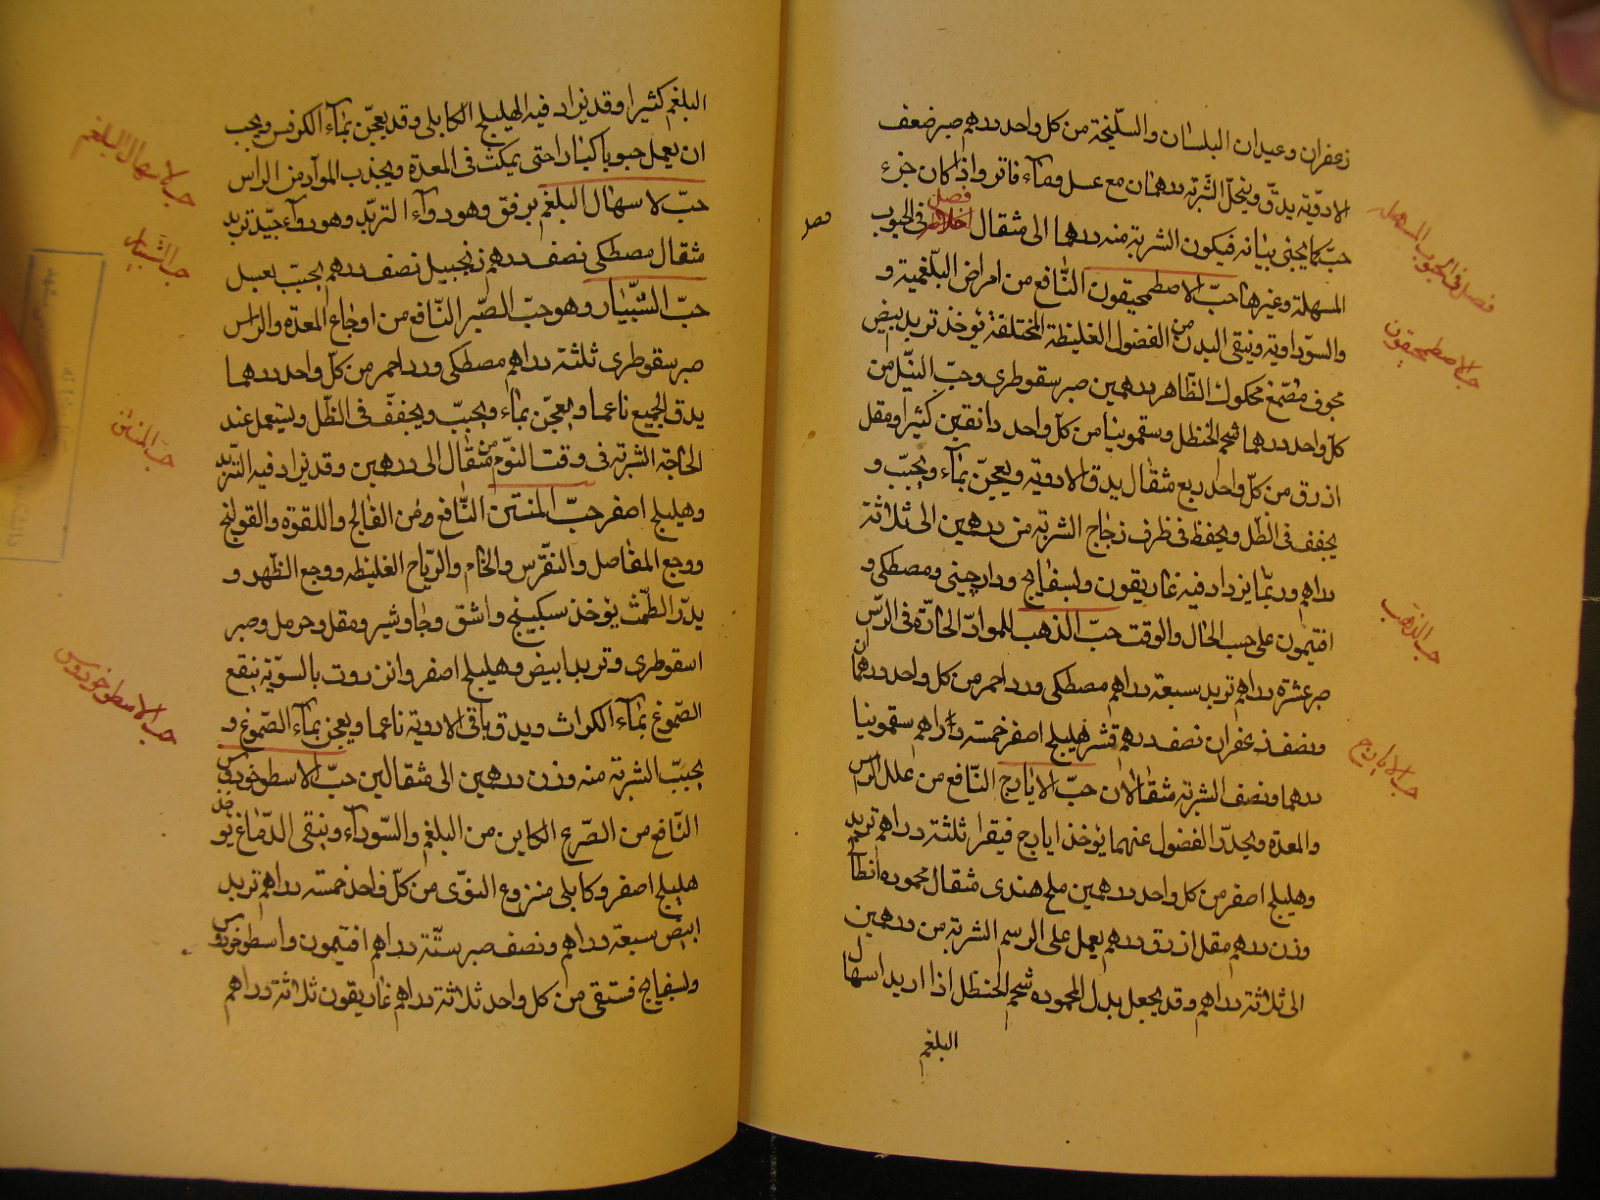 زعفران وعيدان البلسان والسليخة من كل واحد درهم صبر ضعف
الادوية يدق وينخل الشربة درهمان مع عسل وماء فاتر واذا كان جزء
حب كما يجئ بيانه فيكون الشربة منه درهما الى مثقال فصل فى الحبوب
المسهلة وغيرها حب الاصطمحيقون النافع من امراض البلغمية و
والسوداوية وينقى البدن من الفضول الغليظة المختلفة يؤخذ تربد ابيض
مجوف مصمغ محكوك الظاهر درهمين صبر سقوطرى وحب النيل من
كل واحد درهما شحم الحنظل وسقمونيا من كل واحد دانقين كثيرا ومقل
ازرق من كل واحد ربع مثقال يدق الادوية ويعجن بماء ويحبب و
يجفف فى الظل ويحفظ فى ظرف زجاج الشربة من درهمين الى ثلاثة
دراهم وربما يزداد فيه غاريقون وبسفايج ودارچينى ومصطكى و
افتيمون على حسب الحال والوقت حب الذهب للمواد الحادة فى الراس
صبر عشرة دراهم تربد سبعة دراهم مصطكى ورد احمر من كل واحد درهمان
ونصف زعفران نصف درهم قشر هليلج اصفر خمسة دراهم سقمونيا
درهما ونصف الشربة مثقالان حب الايارج النافع من علل الراس
والمعدة ويحدر الفضول عنهما يؤخذ ايارج فيقرا ثلثة دراهم تربد
وهليلج اصفر من كل واحد درهمين ملح هندى مثقال محموده انطاكى
وزن درهم مقل ازرق درهم يعمل على الرسم الشربة من درهمين
الى ثلاثة دراهم وقد يجعل بدل المحموده شحم الحنظل اذا اريد اسهال
البلغم
فصل فى الحبوب المسهلة
حب الاصطمحيقون
حب الذهب
حب الايارج
البلغم كثيرا وقد يزاد فيه الهليلج الكابلى وقد يعجن بماء الكرفس ويجب
ان يعمل حبوبا كبارا حتى يمكث فى المعدة ويجذب المواد من الراس
حب لاسهال البلغم برفق وهو دواء التربد وهو دواء جيد تربد
مثقال مصطكى نصف درهم زنجبيل نصف درهم يحبب بعسل
حب الشبيار وهو حب الصبر النافع من اوجاع المعدة والراس
صبر سقوطرى ثلثة دراهم مصطكى ورد احمر من كل واحد درهما
يدق الجميع ناعما ويعجن بماء ويحبب ويجفف فى الظل ويستعمل عند
الحاجة الشربة فى وقت النوم مثقال الى درهمين وقد يزاد فيه التربد
وهليلج اصفر حب المنتن النافع من الفالج واللقوة والقولنج
ووجع المفاصل والنقرس والخام والرياح الغليظه ووجع الظهر و
يدر الطمث يؤخذ سكبينج واشق وجاوشير ومقل وحرمل وصبر
اسقوطرى وتربد ابيض وهليلج اصفر وانزروت بالسوية ينقع
الصموغ بماء الكراث ويدق باقى الادوية ناعما ويعجن بماء الصموغ و
يحبب الشربة منه وزن درهمين الى مثقالين حب الاسطوخودوس
النافع من الصرع الكاين من البلغم والسوداء وينقى الدماغ يؤخذ
هليلج اصفر وكابلى منزوع النوى من كل واحد خمسة دراهم تربد
ابيض سبعة دراهم ونصف صبر ستة دراهم افتيمون واسطوخودوس
وبسفايج فستقى من كل واحد ثلاثة دراهم غاريقون ثلاثة دراهم
حب لاسهال البلغم
حب الشبيار
حب المنتن
حب الاسطوخودوس